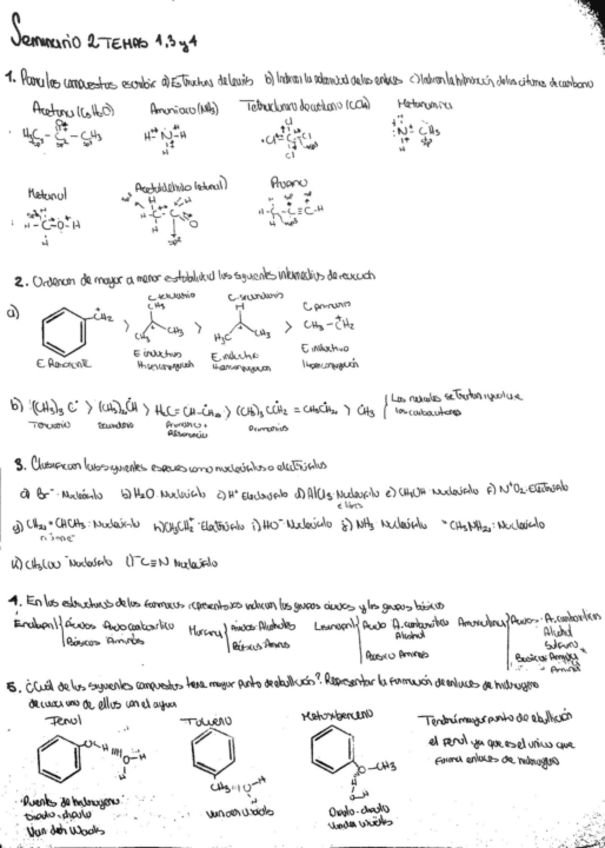 Seminario 2 TEMAS 1,3 y 4
1. Para los compuestos escribir a) Estructura de Lewis b) Indicar la polaridad de los enlaces c) Indicar la hibridación de los átomos de carbono
Acetona (C3H6O) Amoniaco (NH3) Tetracloruro de carbono (CCl4) Metanamina
Metanol Acetaldehído (etanal) Propino
2. Ordenar de mayor a menor estabilidad los siguientes intermedios de reacción
C terciario C-secundario C primario
a) CH2 > CH3 CH3 CH3 > H H3C CH3 > CH3-CH2
E Resonante E inductivo E inductivo E inductivo
Hiperconjugación Hiperconjugación Hiperconjugación
b) (CH3)3 C· > (CH3)2CH > H2C=CH-CH2 > (CH3)3 CCH2 = CH3CH2 > CH3
Terciario Secundario Primario + Resonancia Primarios
3. Clasificar las siguientes especies como nucleófilos o electrófilos
a) Br- Nucleófilo b) H2O Nucleófilo c) H+ Electrófilo d) AlCl3 e) CH3OH Nucleófilo f) N+O2 Electrófilo
g) CH2=CHCH3: Nucleófilo h) CH3CH2+ Electrófilo i) HO- Nucleófilo j) NH3 Nucleófilo CH3NH2: Nucleófilo
k) CH3COO- Nucleófilo l) -C≡N Nucleófilo
4. En las estructuras de los fármacos representados indican los grupos ácidos y los grupos básicos
Enalapril Ácidos Ácido carboxílico Ácidos Alcoholes Lisinopril Ácido A. carboxílico Ácidos A. carboxílico
Básicos Aminas Básicos Aminas Alcohol Alcohol
Básico Aminas
5. ¿Cuál de los siguientes compuestos tiene mayor punto de ebullición? Representar la formación de enlaces de hidrógeno
de cada uno de ellos con el agua
Fenol Tolueno Metoxibenceno Tendrá mayor punto de ebullición
el fenol ya que es el único que
forma enlaces de hidrógeno
O-H O-H H CH3 O-CH3
Puentes de hidrógeno
Dipolo-dipolo Van der Waals Dipolo-dipolo
Van der Waals Van der Waals